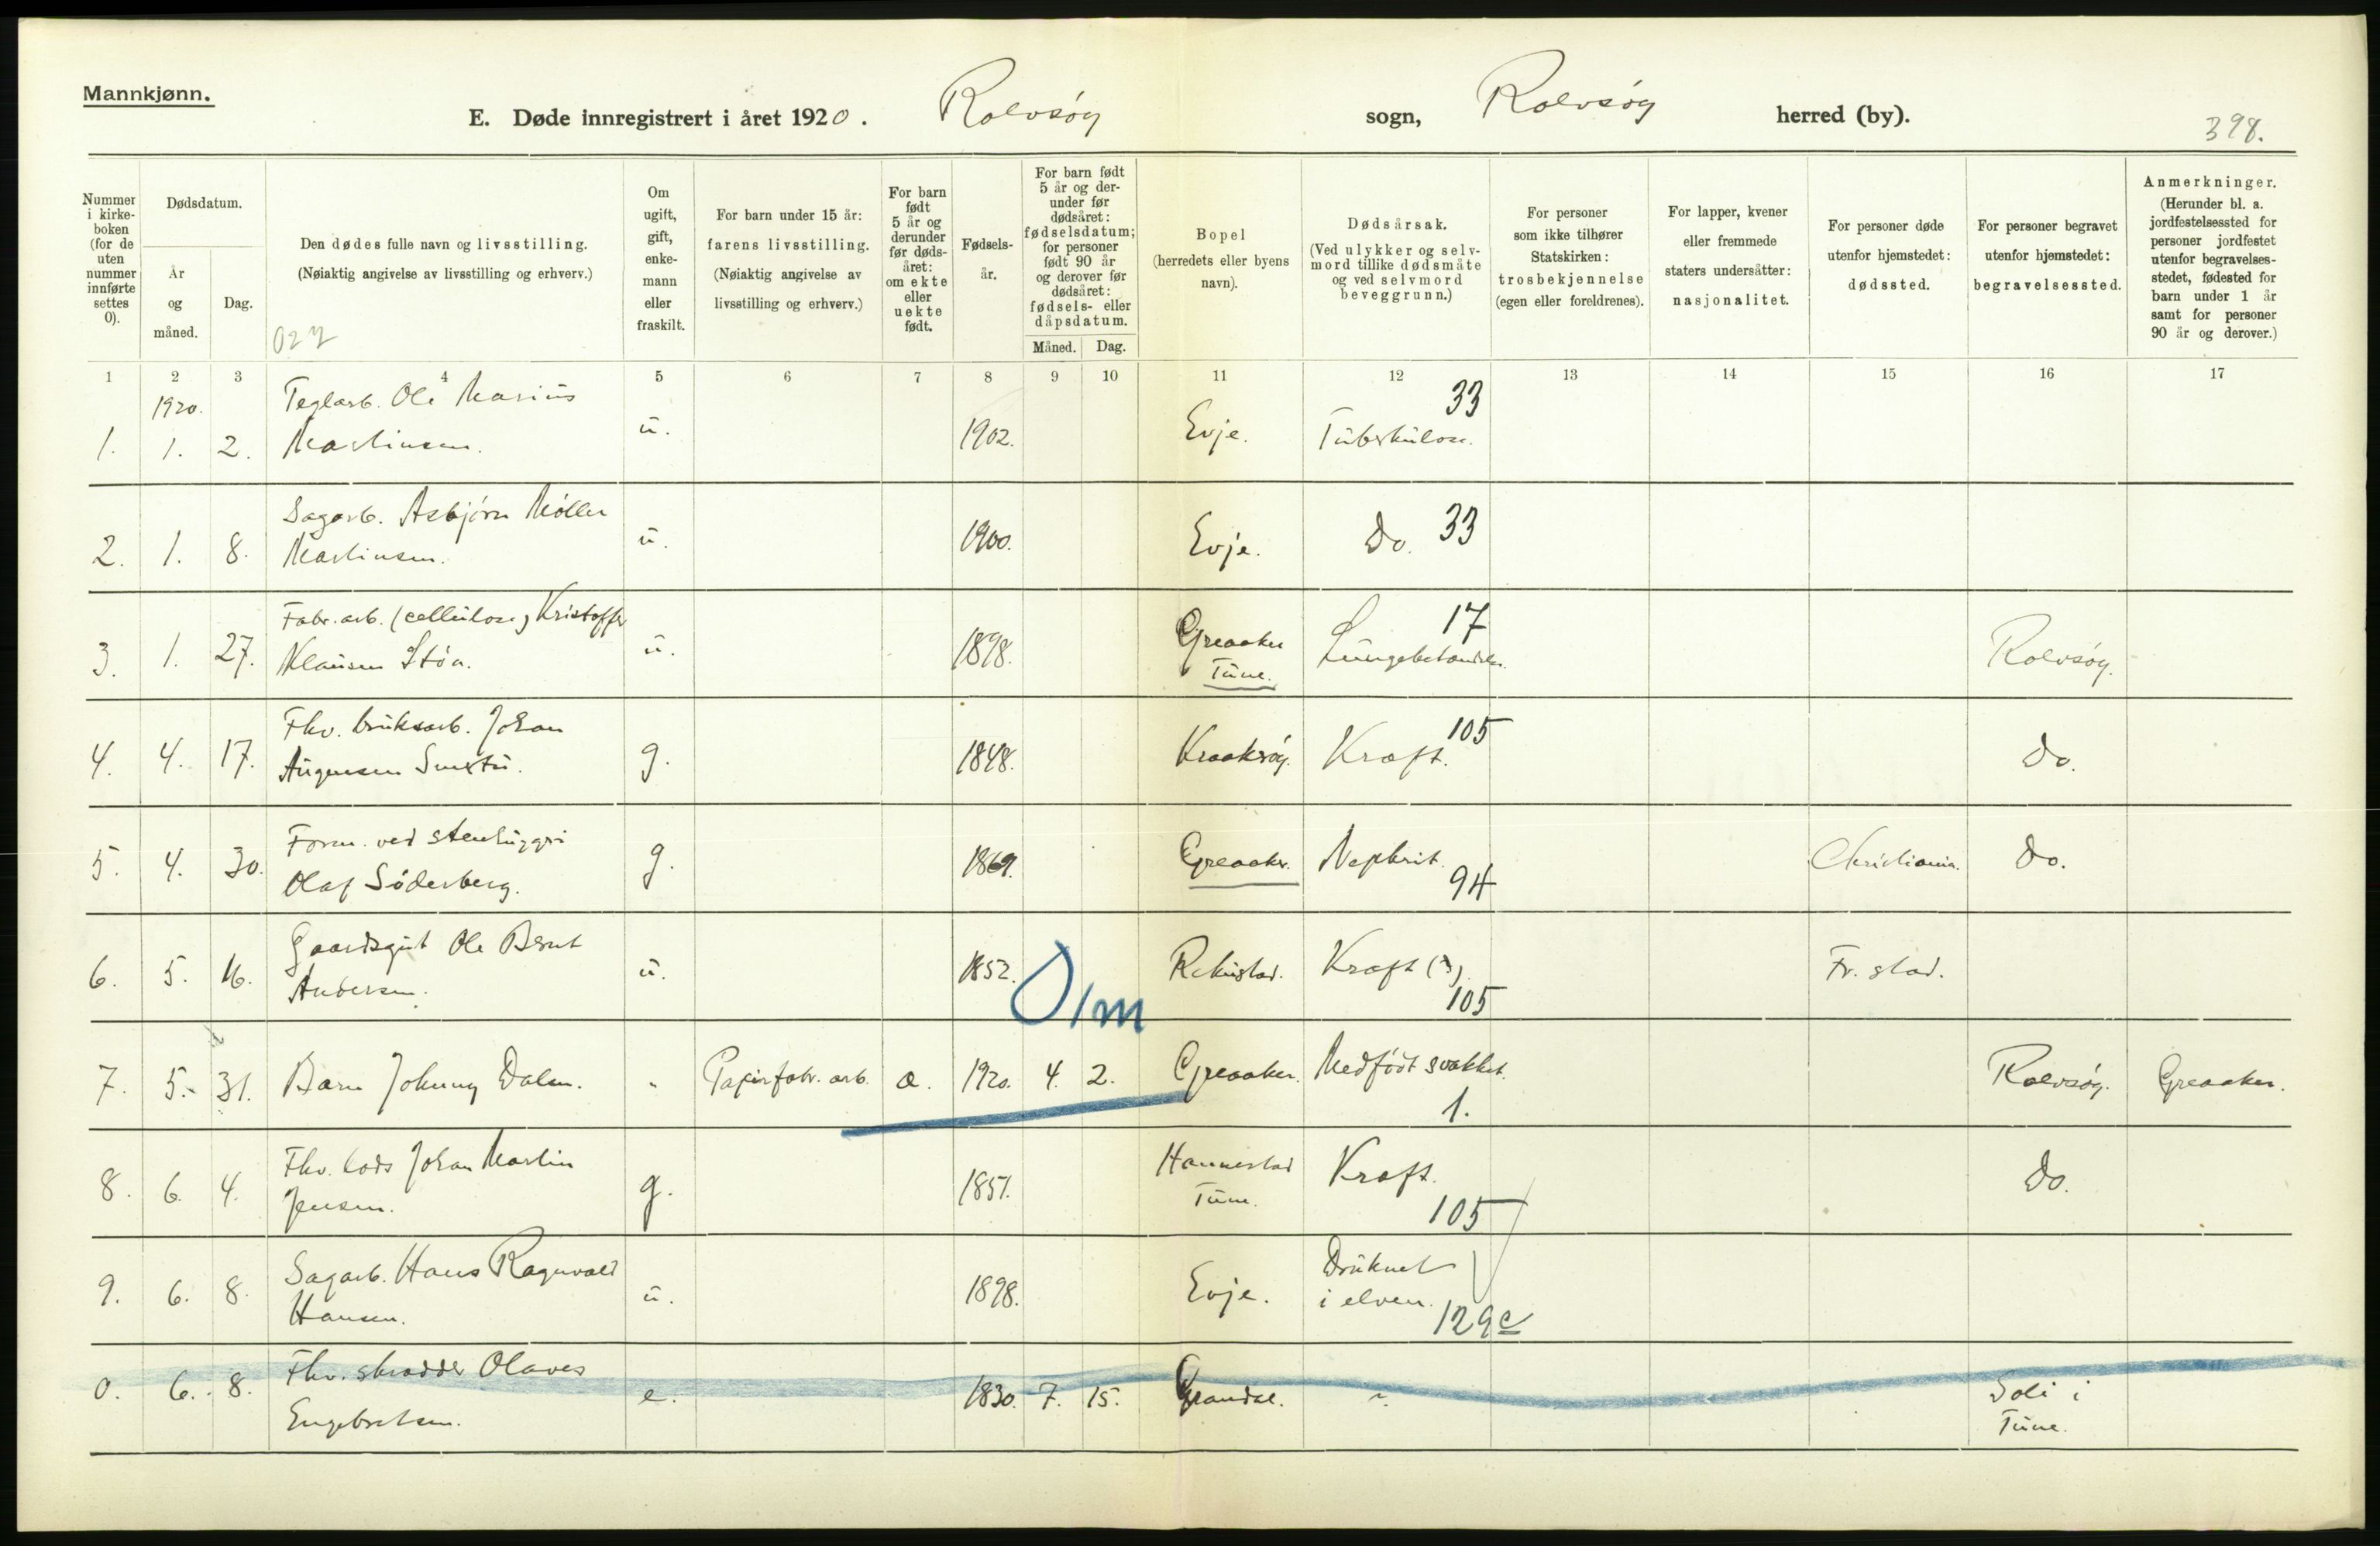 Mannkjønn.
E. Døde innregistrert i året 1920. Rolvsøy sogn, Rolvsøy herred (by).
398.
Nummer i kirkeboken (for de uten nummer innførte settes 0).
Dødsdatum.
År og måned.
Dag.
Den dødes fulle navn og livsstilling.
(Nøiaktig angivelse av livsstilling og erhverv.)
027
Om ugift, gift, enkemann eller fraskilt.
For barn under 15 år: farens livsstilling. (Nøiaktig angivelse av livsstilling og erhverv.)
For barn født 5 år og derunder før dødsåret: om ekte eller uekte født.
Fødselsår.
For barn født 5 år og derunder før dødsåret: fødselsdatum; for personer født 90 år og derover før dødsåret: fødsels- eller dåpsdatum.
Måned. Dag.
Bopel (herredets eller byens navn).
Dødsårsak. (Ved ulykker og selvmord tillike dødsmåte og ved selvmord beveggrunn.)
For personer som ikke tilhører Statskirken: trosbekjennelse (egen eller foreldrenes).
For lapper, kvener eller fremmede staters undersåtter: nasjonalitet.
For personer døde utenfor hjemstedet: dødssted.
For personer begravet utenfor hjemstedet: begravelsessted.
Anmerkninger. (Herunder bl. a. jordfestelsessted for personer jordfestet utenfor begravelsesstedet, fødested for barn under 1 år samt for personer 90 år og derover.)
1 2 3 4 5 6 7 8 9 10 11 12 13 14 15 16 17
1920.
1. 1. 2. Teglarb. Ole Marius Martinsen. u. 1902. Evje. Tuberkulose. 33
2. 1. 8. Sagarb. Asbjørn Møller Martinsen. u. 1900. Evje. Do. 33
3. 1. 27. Fabr. arb. (cellulose) Kristoffer Klausen Stöa. u. 1898. Greaaker Tune. Lungebetændelse. 17 Rolvsøy.
4. 4. 17. Fhv. bruksarb. Johan Augensen g. 1848. Kraakrøy. Kræft. 105 Do.
5. 4. 30. Form. ved stenhuggeri Olaf Söderberg. g. 1869. Greaaker. Nephrit. 94 Christiania. Do.
6. 5. 16. Gaardsgut Ole Bernt Andersen. u. 1852. Kræft (?) 105 Fr.stad.
01m
7. 5. 31. Barn Johnny Dalen. " Papirfabr. arb. æ. 1920. 4. 2. Greaaker. Medfödt svakhet. 1. Rolvsøy. Greaaker.
8. 6. 4. Fhv. lods Johan Martin Jensen. g. 1851. Hannestad Tune. Kræft. 105 Do.
9. 6. 8. Sagarb. Hans Ragnvald Hansen. u. 1898. Evje. Druknet i elven. 129c
0. 6. 8. Fhv. skrædder Olaves Engebretsen. e. 1830. 7. 15. " Soli i Tune.